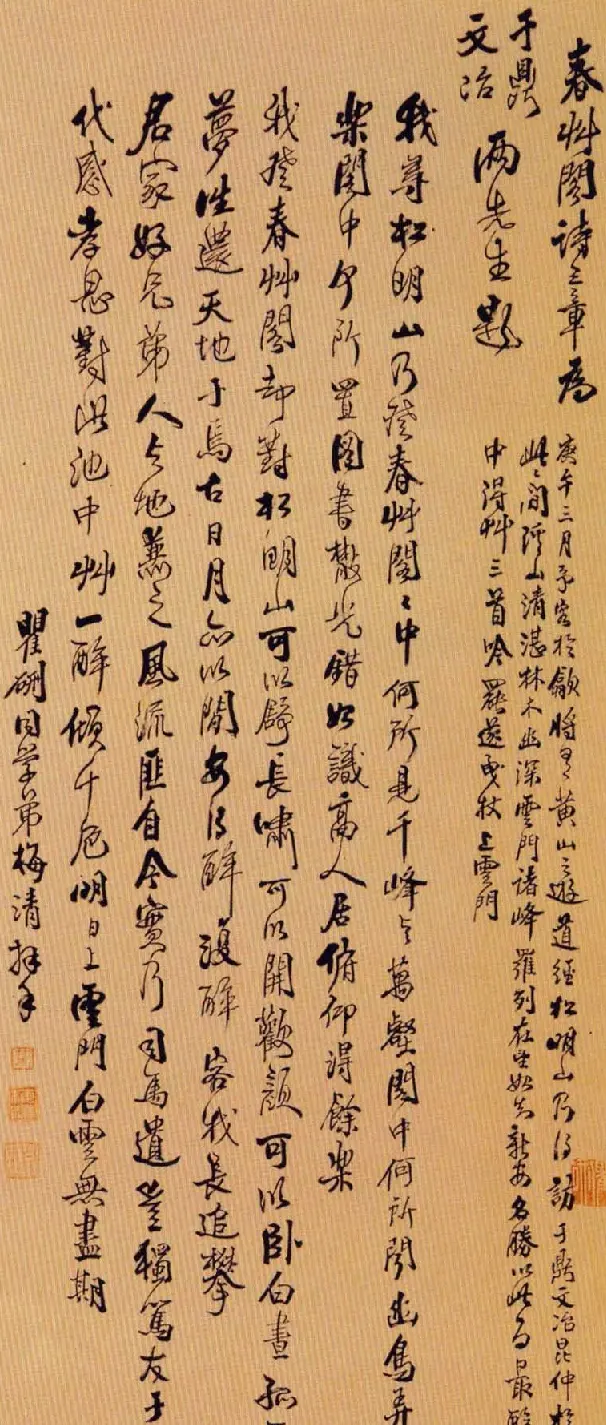 春艸閣詩三章為
于鼎
文冶
兩先生題
庚午三月予客於歙將爲黃山之遊道經松明山乃得訪于鼎文冶昆仲於
此間溪山清湛林木幽深雲門諸峰羅列在望如黃新安名勝以此為最
中得艸三首吟罷遂曳杖上雲門
我尋松明山乃登春艸閣閣中何所見千峰與萬壑閣中何所聞幽鳥弄
樂閣中何所置圖書散光錯如識高人居俯仰得餘樂
我登春艸閣却對松明山可以舒長嘯可以開歡顏可以臥白晝
夢往還天地于焉古日月亦以閒安得醉復醉容我長追攀
名家好兄弟人與地兼之風流匪自今實乃司馬遺豈獨篤友于
代感孝思對洪池中艸一醉傾千卮明日上雲門白雲無盡期
瞿硎同學弟梅清拜手